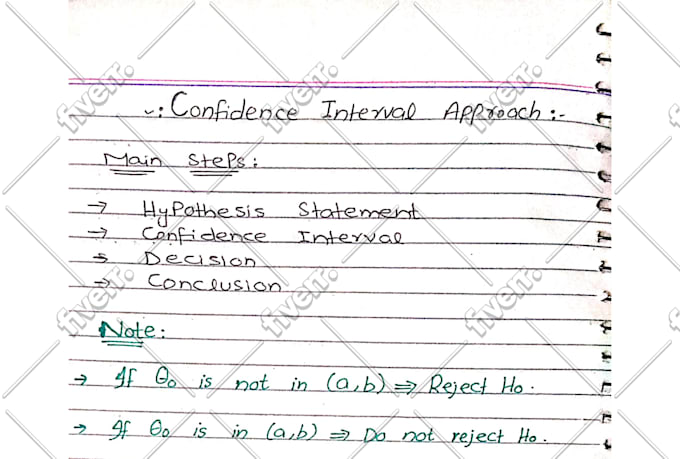 -: Confidence Interval Approach :-
Main Steps :
→ Hypothesis Statement
→ Confidence Interval
→ Decision
→ Conclusion
Note :
→ If θ₀ is not in (a,b) ⇒ Reject H₀.
→ If θ₀ is in (a,b) ⇒ Do not reject H₀.
fiverr.
fiverr.
fiverr.
fiverr.
fiverr.
fiverr.